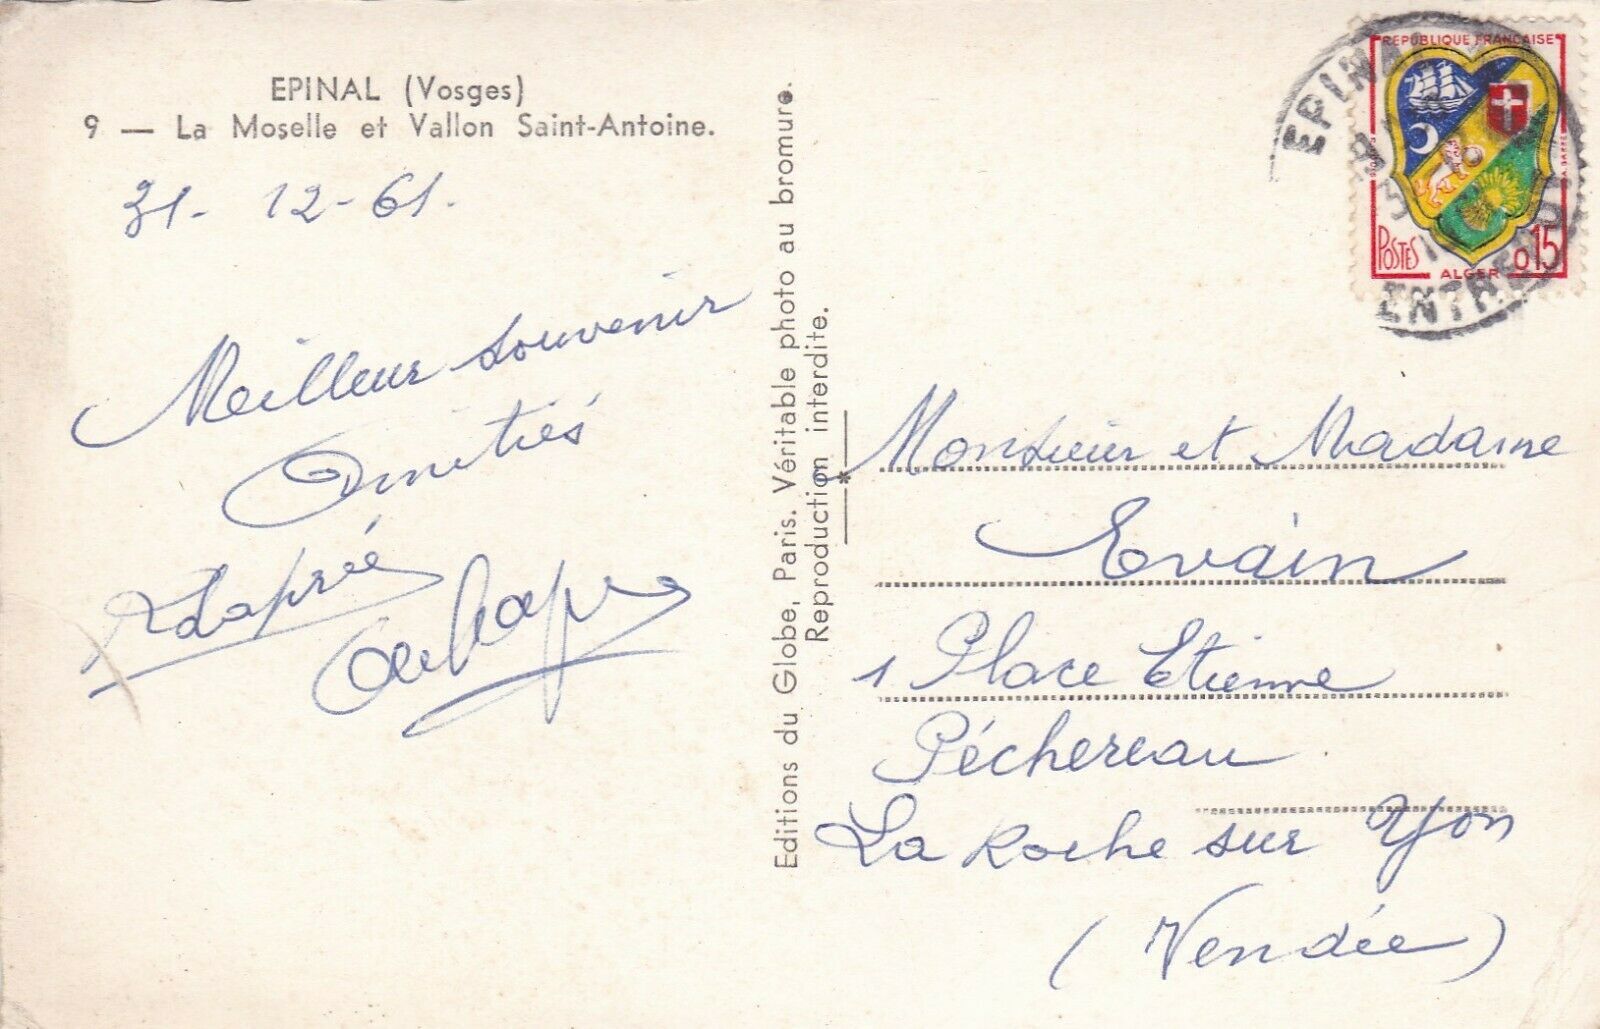 EPINAL (Vosges)
9 — La Moselle et Vallon Saint-Antoine.
31-12-61.
Meilleur souvenir
Amitiés
Editions du Globe, Paris. Véritable photo au bromure.
Reproduction interdite.
REPUBLIQUE FRANÇAISE
POSTES
ALGER
0,15
EPINAL
ENTREPOT
Monsieur et Madame
Evain
1 Place Etienne
Péchereau
La Roche sur Yon
(Vendée)